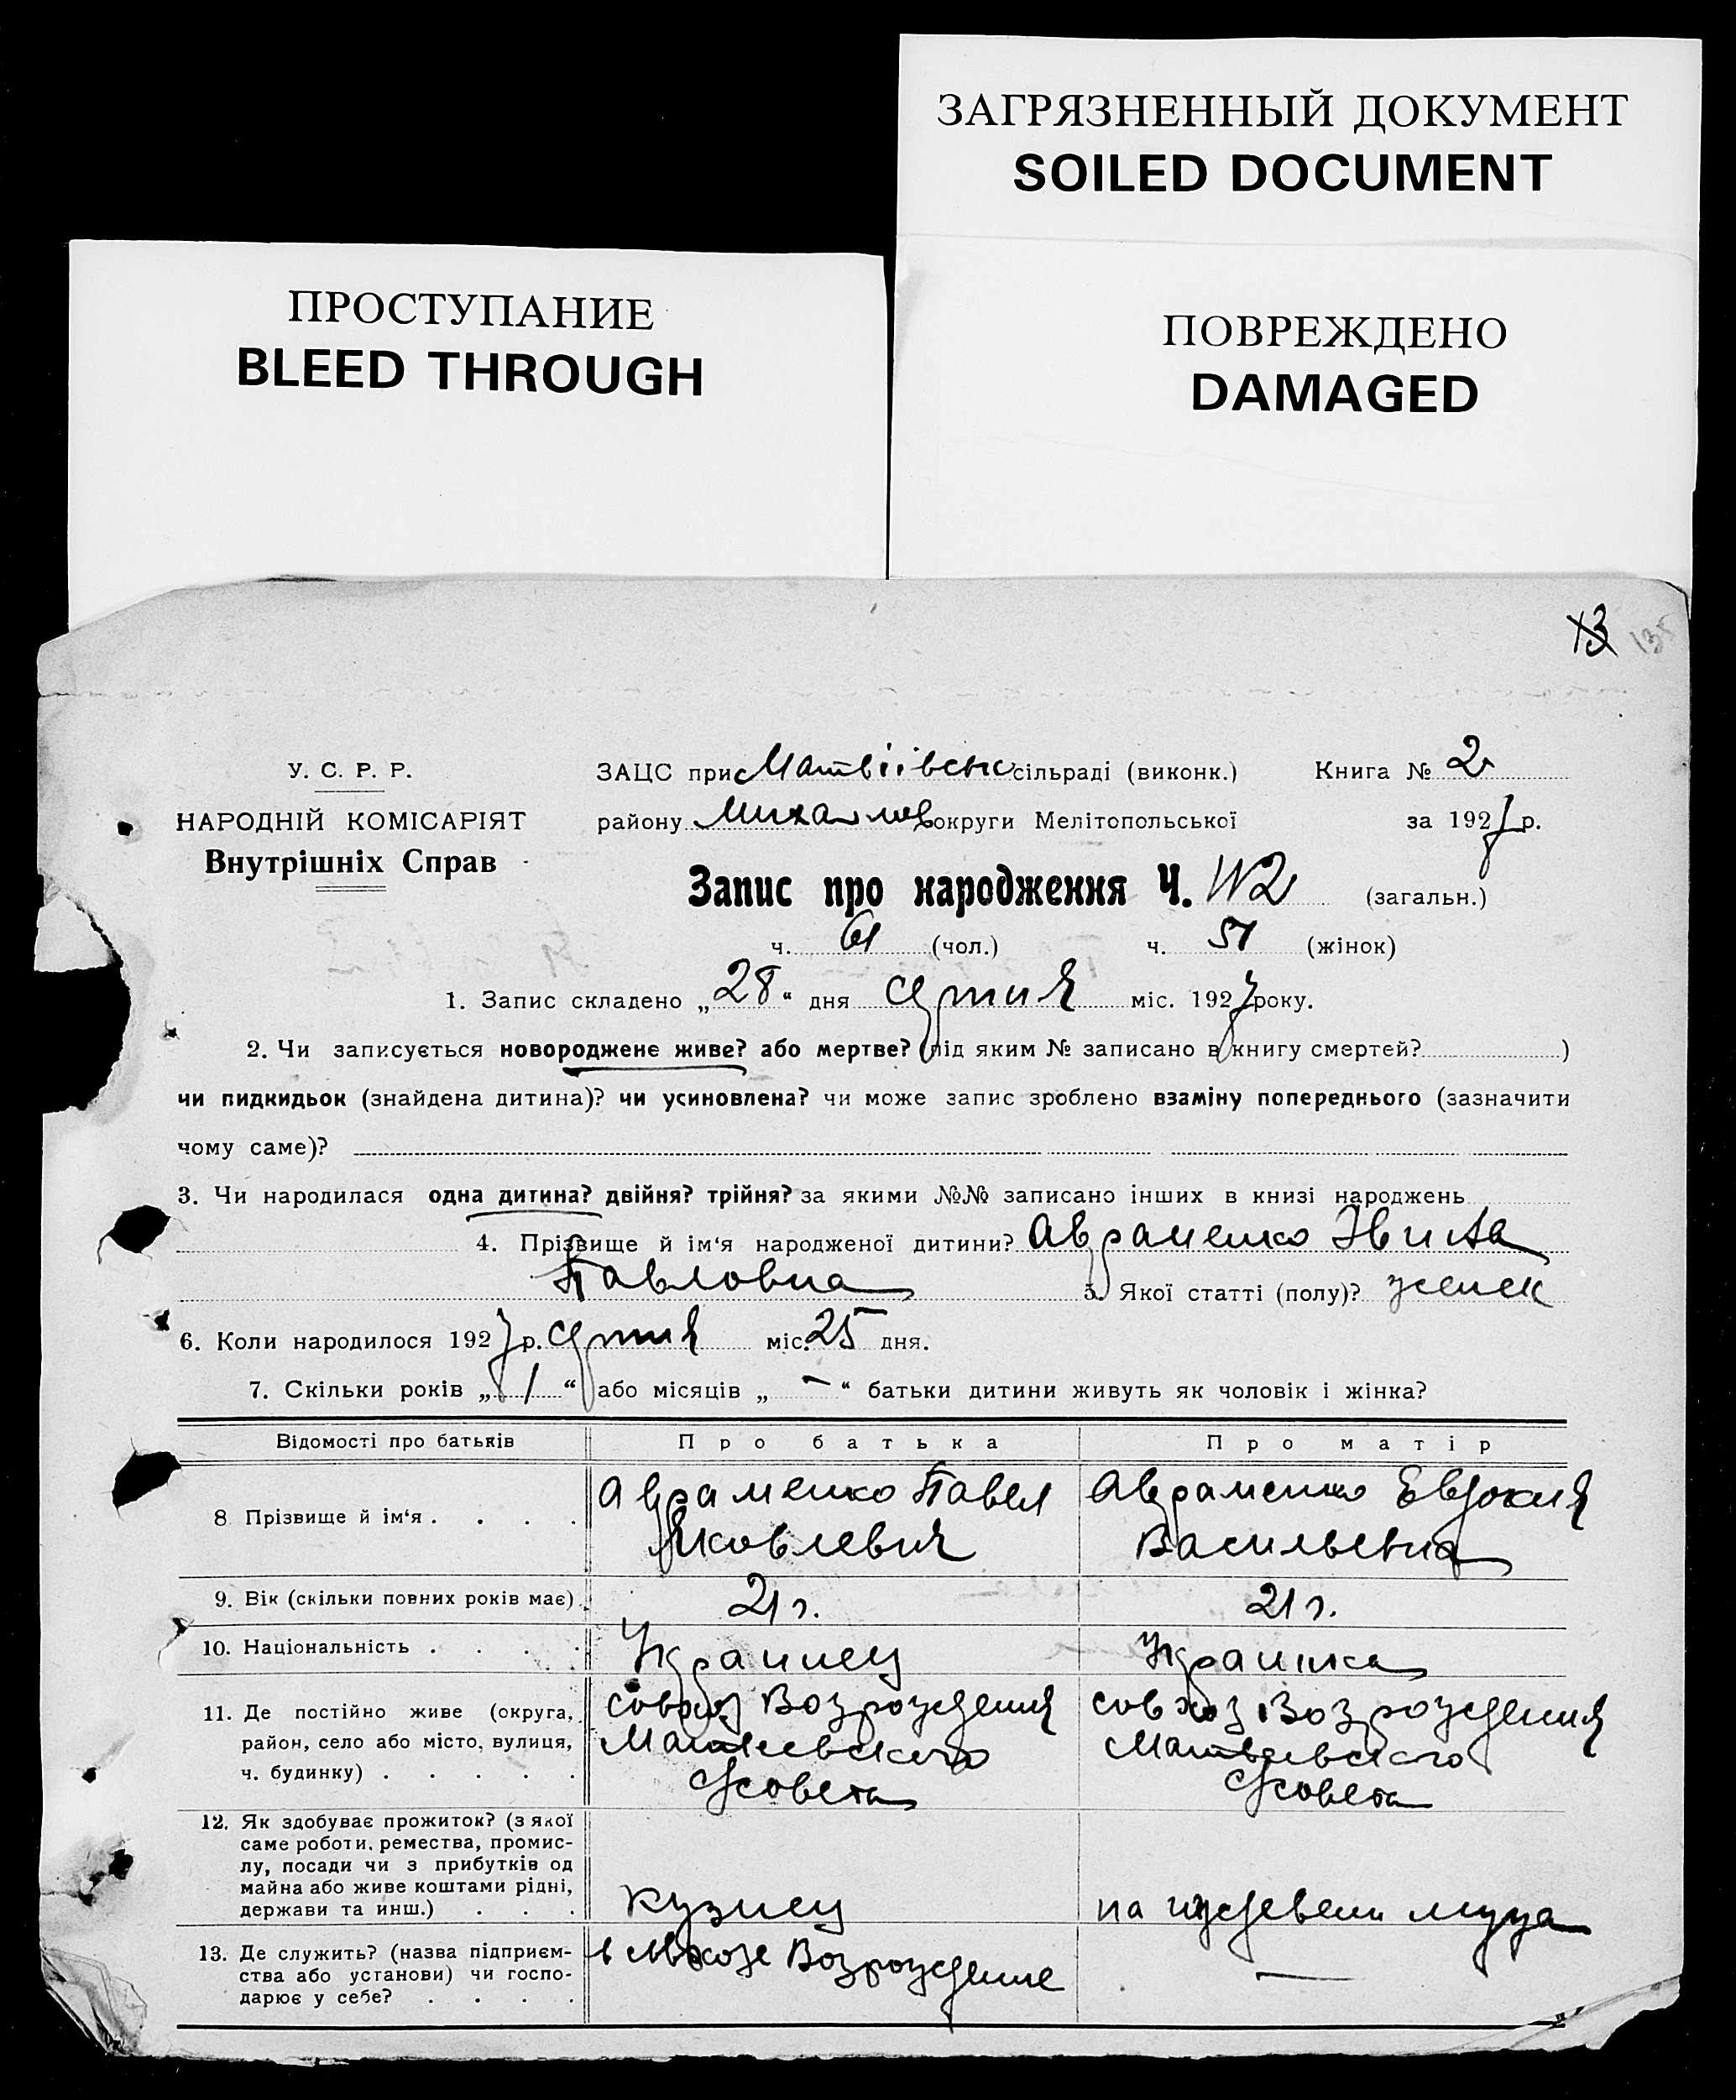 ЗАГРЯЗНЕННЫЙ ДОКУМЕНТ
SOILED DOCUMENT
ПРОСТУПАНИЕ
BLEED THROUGH
ПОВРЕЖДЕНО
DAMAGED
13 135
У. С. Р. Р.
НАРОДНІЙ КОМІСАРІЯТ
Внутрішніх Справ
ЗАЦС при Матвіівськ сільраді (виконк.) Книга № 2
району Михайлов округи Мелітопольської за 1927 р.
Запис про народження Ч. 112 (загальн.)
ч. 61 (чол.) ч. 51 (жінок)
1. Запис складено „28“ дня міс. 1927 року.
2. Чи записується новороджене живе? або мертве? (під яким № записано в книгу смертей? )
чи пидкидьок (знайдена дитина)? чи усиновлена? чи може запис зроблено взаміну попереднього (зазначити
чому саме)?
3. Чи народилася одна дитина? двійня? трійня? за якими №№ записано інших в книзі народжень
4. Прізвище й ім‘я народженої дитини? Авраменко
Павловна 5. Якої статті (полу)? женск
6. Коли народилося 1927 р. міс. 25 дня.
7. Скільки років „1“ або місяців „—“ батьки дитини живуть як чоловік і жінка?
Відомості про батьків Про батька Про матір
8 Прізвище й ім‘я . . . . Авраменко Павел Авраменко Евдокия
Яковлевич Васильевна
9. Вік (скільки повних років має) . 21 г. 21 г.
10. Національність . . . . Украинец Украинка
11. Де постійно живе (округа, совхоз Возрождения совхоз Возрождения
район, село або місто, вулиця, Матвеевского Матвеевского
ч. будинку) . . . . . с/совета с/совета
12. Як здобуває прожиток? (з якої
саме роботи, ремества, промис-
лу, посади чи з прибутків од
майна або живе коштами рідні,
держави та инш.) . . . Кузнец на иждевени мужа
13. Де служить? (назва підприєм- в совхозе Возрождение —
ства або установи) чи госпо-
дарює у себе? . . . .